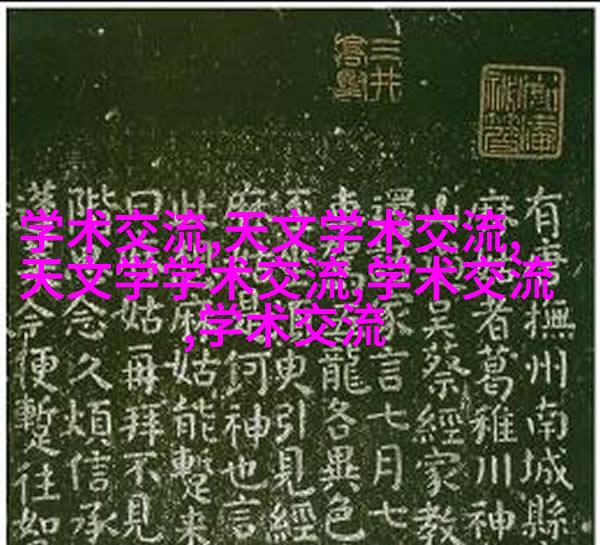 三井
高堅
学术交流,天文学术交流,
天文学学术交流,学术交流
,学术交流
有 撫州南城縣
者葛稚川神
吳蔡經家教
還 家言七月七
龍各異色
臾引見經
何神也言
此 麻姑能蹔来
曰 姑再拜不見
階 念久煩信承
今便蹔往如